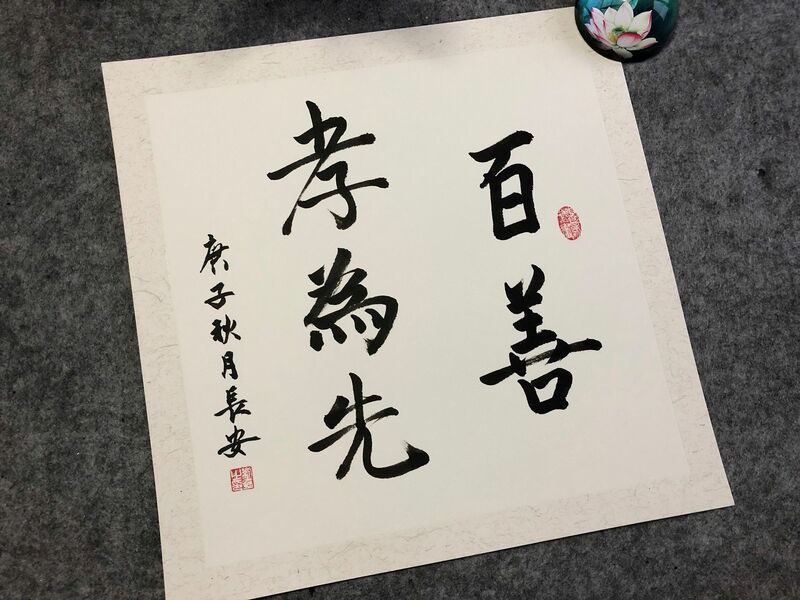 百善
孝為先
庚子秋月長安